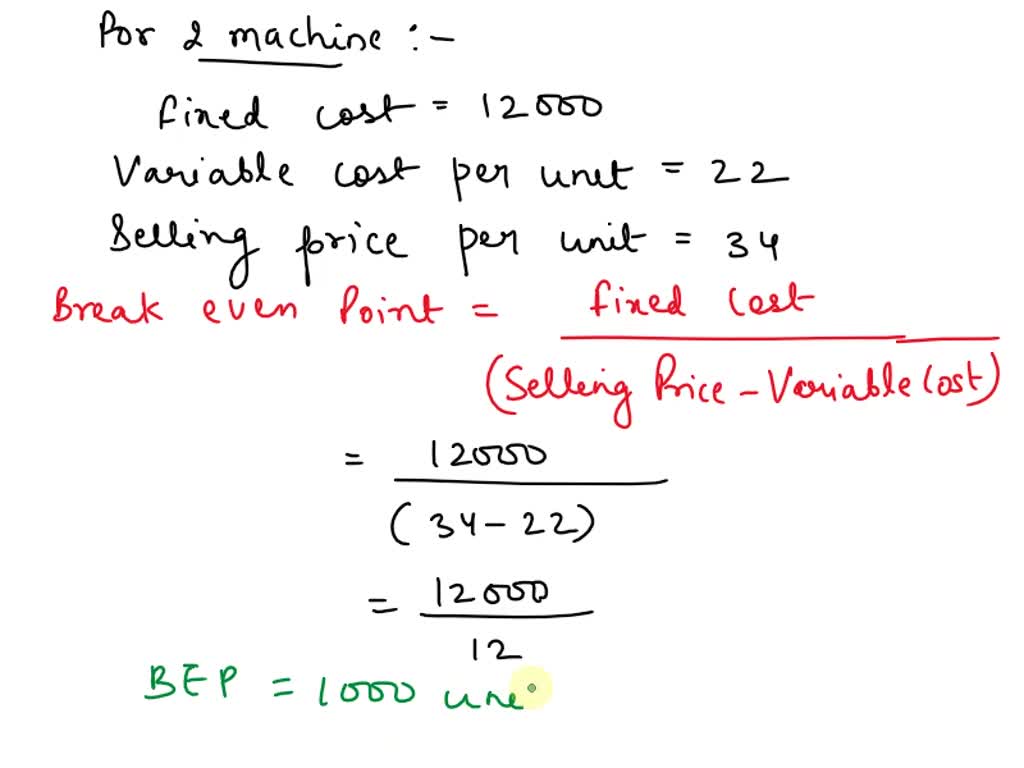 For 2 machine :-
fixed cost = 12000
Variable cost per unit = 22
Selling price per unit = 34
Break even Point = fixed cost
(Selling Price - Variable Cost)
= 12000
(34 - 22)
= 12000
12
BEP = 1000 uni